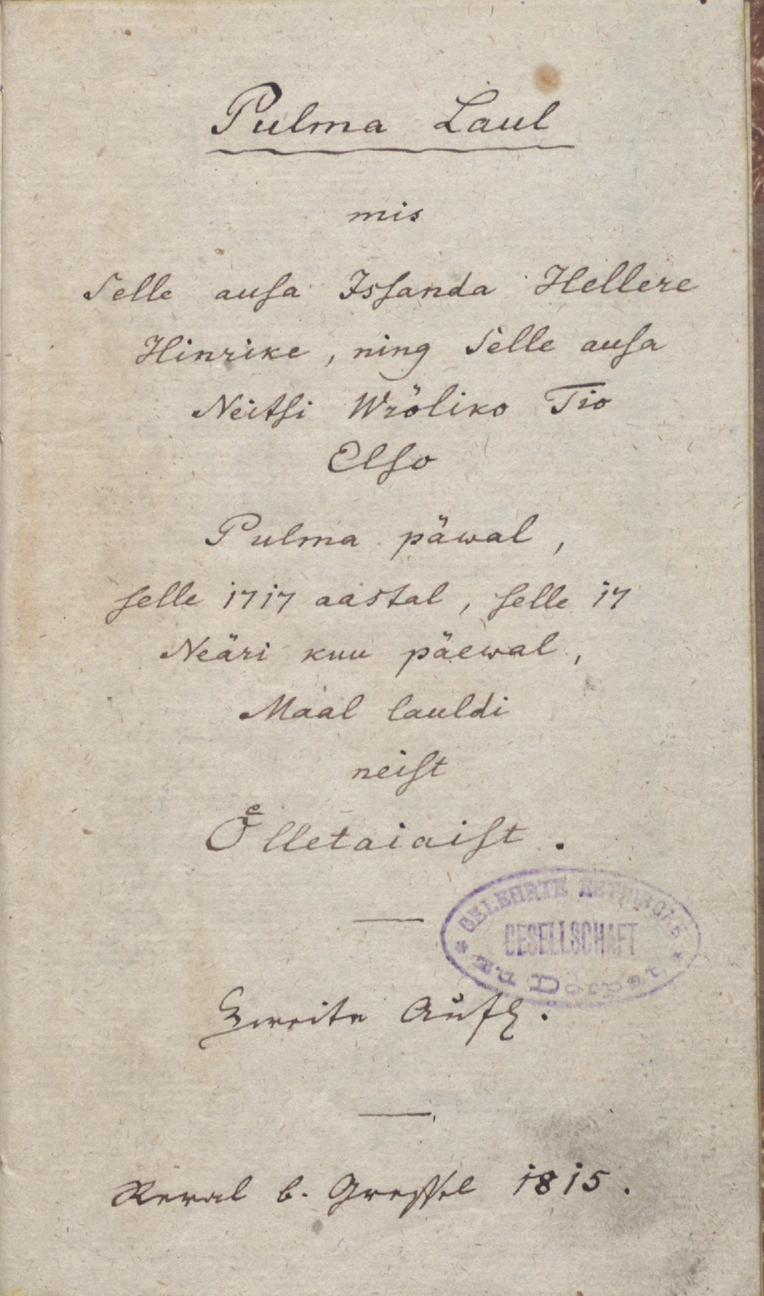 Pulma Laul
mis
Selle auſa Isſanda Hellere
Hinrike, ning Selle auſa
Neitſi Wröliko Tio
Elſo
Pulma päwal,
ſelle 1717 aastal, ſelle 17
Neäri kuu päewal,
Maal lauldi
neiſt
Oͤlletaiaiſt.
GELEHRTE ESTNISCHE
GESELLSCHAFT
zu Dorpat
Zweite Aufl.
Reval b. Gressel 1815.